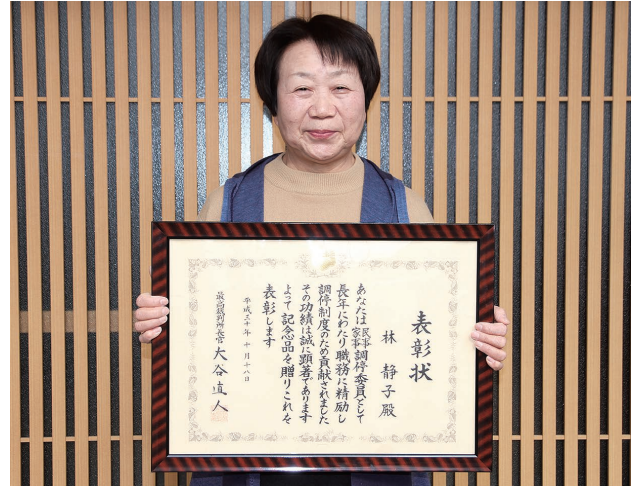 表彰状
林 静子殿
あなたは民事家事調停委員として
長年にわたり職務に精励し
調停制度のため貢献されました
その功績は誠に顕著であります
よって記念品を贈りこれを
表彰します
平成三十年十月十八日
最高裁判所長官 大谷直人